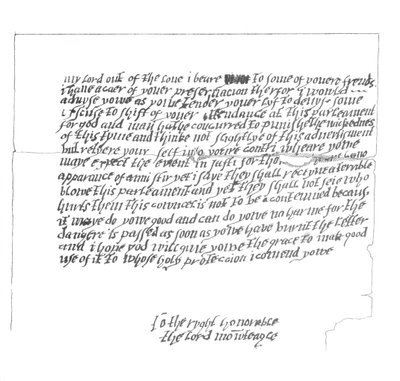 my lord out of the loue i beare to some of youere frends
i haue a caer of youer preseruacion therfor i would
aduyse yowe as yowe tender youer lyf to deuyse some
excuse to shift of youer attendance at this parleament
for god and man hathe concurred to punishe the wickednes
of this tyme and thinke not slightlye of this aduertisment
but retyere youre self into youre contri wheare yowe
maye expect the euent in safti for tho
apparance of anni stir yet i saye they shall receyue a terrible
blowe this parleament and yet they shall not seie who
hurts them this councel is not to be contemned because
it maye do yowe good and can do yowe no harme for the
dangere is passed as soon as yowe haue burnt the letter
and i hope god will giue yowe the grace to mak good
use of it to whose holy proteccion i comend yowe
To the ryght honorable
the lord mowteagle